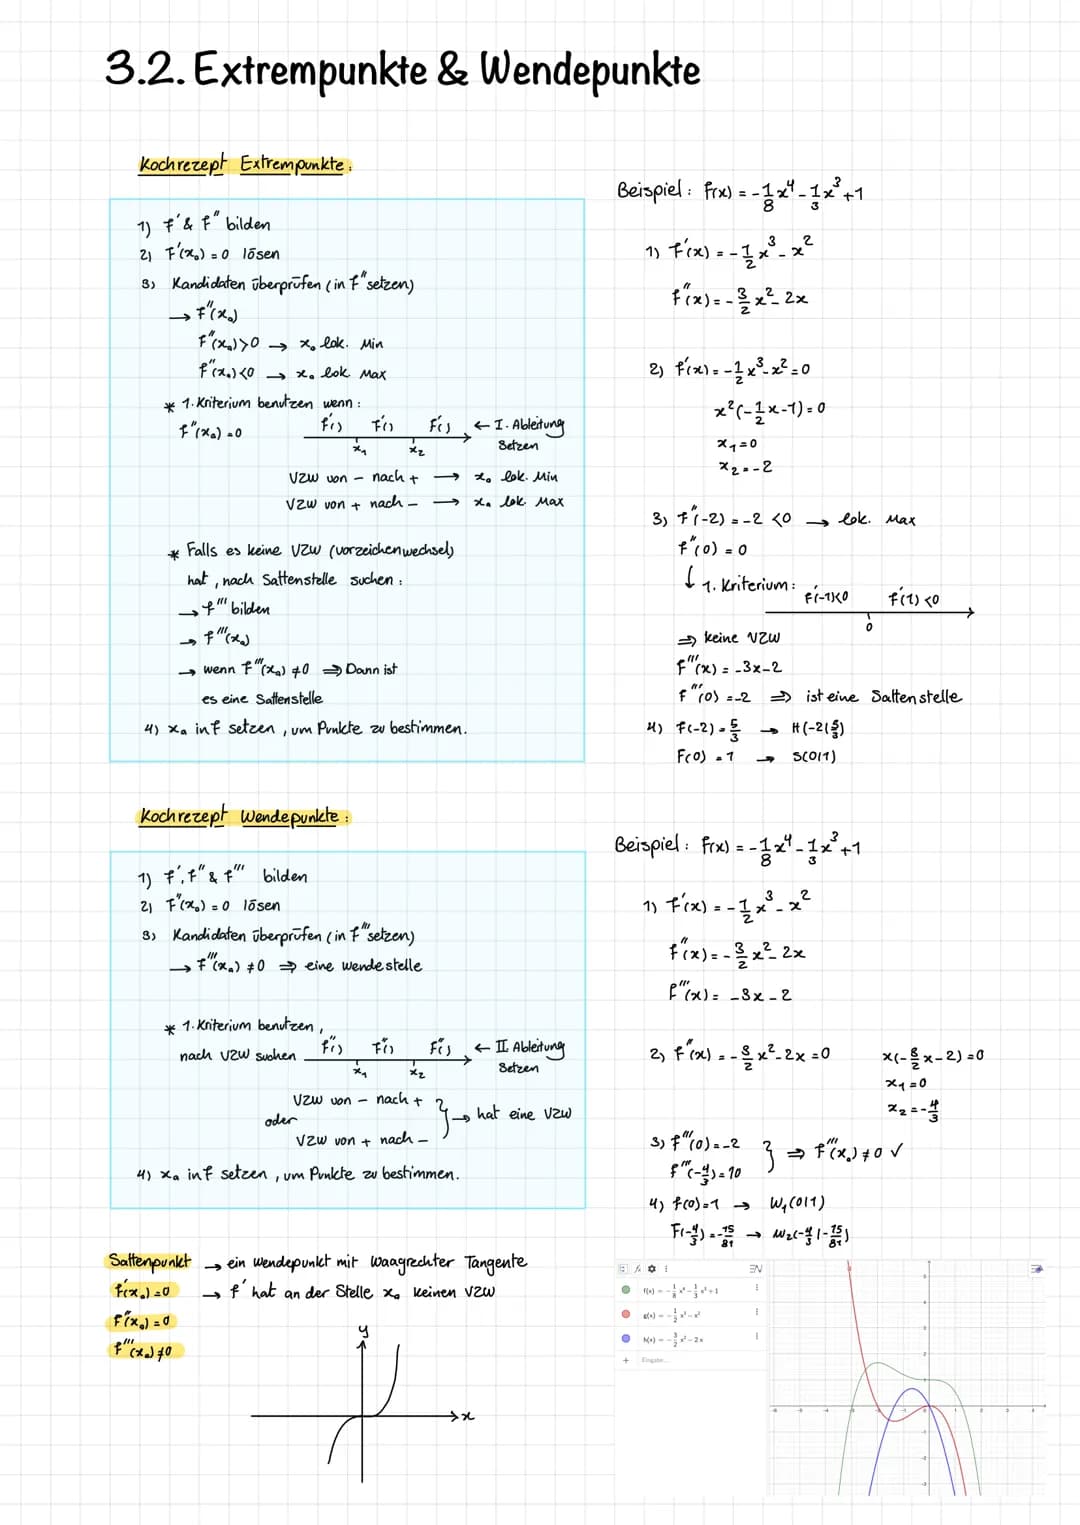 3.2. Extrempunkte & Wendepunkte
Kochrezept Extrempunkte:
1) f' & f" bilden
2) f'(x₀) = 0 lösen
3) Kandidaten überprüfen (in f" setzen)
→ f"(x₀)
f"(x₀)>0 → x₀ lok. Min
f"(x₀)<0 → x₀ lok. Max
* 1. Kriterium benutzen wenn:
f"(x₀) = 0
f'( ) f'( ) f'( ) ← I. Ableitung
setzen
x₁ x₂
VZW von - nach + → x₀ lok. Min
VZW von + nach - → x₀ lok. Max
* Falls es keine VZW (vorzeichenwechsel)
hat, nach Sattenstelle suchen:
→ f''' bilden
→ f'''(x₀)
→ wenn f'''(x₀) ≠0 ⇒ Dann ist
es eine Sattenstelle
4) x₀ in f setzen, um Punkte zu bestimmen.
Beispiel: f(x) = -1/8 x⁴ - 1/3 x³ + 1
1) f'(x) = -1/2 x³ - x²
f"(x) = -3/2 x² - 2x
2) f'(x) = -1/2 x³ - x² = 0
x²(-1/2 x - 1) = 0
x₁ = 0
x₂ = -2
3) f"(-2) = -2 <0 → lok. Max
f"(0) = 0
↓ 1. Kriterium:
f'(-1)<0 f'(1) <0
0
⇒ keine VZW
f'''(x) = -3x-2
f'''(0) = -2 ⇒ ist eine Sattenstelle
4) f(-2) = 5/3 → H(-2|5/3)
F(0) = 1 → S(0|1)
Kochrezept Wendepunkte:
1) f', f" & f''' bilden
2) f"(x₀) = 0 lösen
3) Kandidaten überprüfen (in f''' setzen)
→ f'''(x₀) ≠0 ⇒ eine wendestelle
* 1. Kriterium benutzen,
nach VZW suchen
f"( ) f"( ) f"( ) ← II. Ableitung
setzen
x₁ x₂
VZW von - nach +
oder
VZW von + nach -
} → hat eine VZW
4) x₀ in f setzen, um Punkte zu bestimmen.
Beispiel: f(x) = -1/8 x⁴ - 1/3 x³ + 1
1) f'(x) = -1/2 x³ - x²
f"(x) = -3/2 x² - 2x
f'''(x) = -3x - 2
2) f"(x) = -3/2 x² - 2x = 0 x(-3/2 x - 2) = 0
x₁ = 0
x₂ = -4/3
3) f'''(0) = -2
f'''(-4/3) = 10
} ⇒ f'''(x₀) ≠ 0 ✓
4) f(0) = 1 → W₁(0|1)
F(-4/3) = -75/81 → W₂(-4/3 | -75/81)
Sattenpunkt → ein wendepunkt mit Waagrechter Tangente
f'(x₀) = 0 → f' hat an der Stelle x₀ keinen VZW
f"(x₀) = 0
f'''(x₀) ≠0
y
x
f(x) = -1/8 x⁴ - 1/3 x³ + 1
g(x) = -1/2 x³ - x²
h(x) = -3/2 x² - 2x
+ Eingabe...